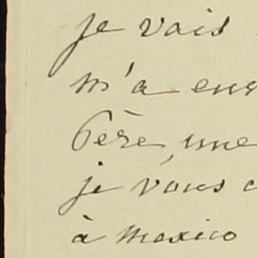 je vais
m'a env
Père, une
je vous c
à mexico